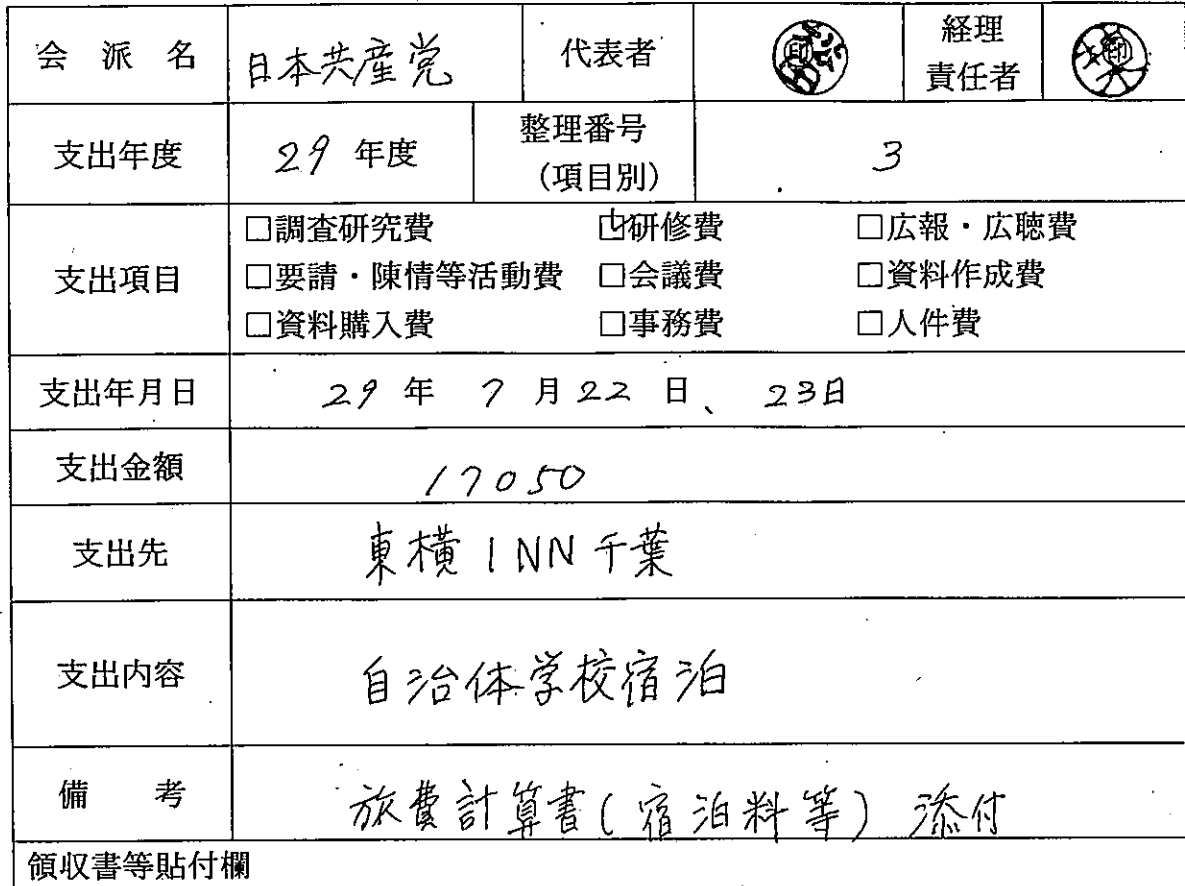 会 派 名 日本共産党 代表者 印 経理責任者 印
支出年度 29 年度 整理番号(項目別) 3
支出項目 □調査研究費 ☑研修費 □広報・広聴費
□要請・陳情等活動費 □会議費 □資料作成費
□資料購入費 □事務費 □人件費
支出年月日 29 年 7 月 22 日、23日
支出金額 17050
支出先 東横INN千葉
支出内容 自治体学校宿泊
備 考 旅費計算書(宿泊料等)添付
領収書等貼付欄